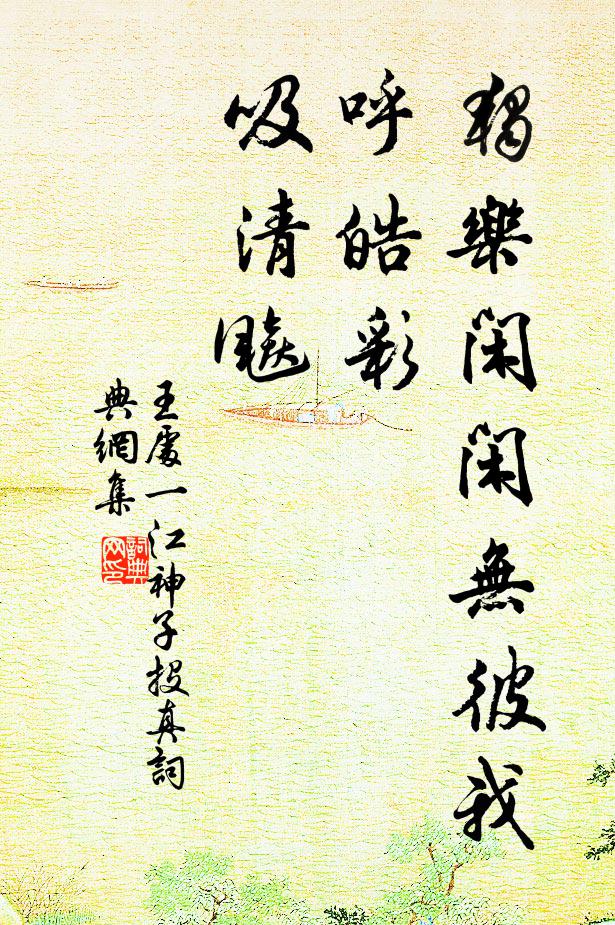 獨樂閑閑無彼我
呼皓彩
吸清飈
王處一江神子投真詞
典網集
詞典網印